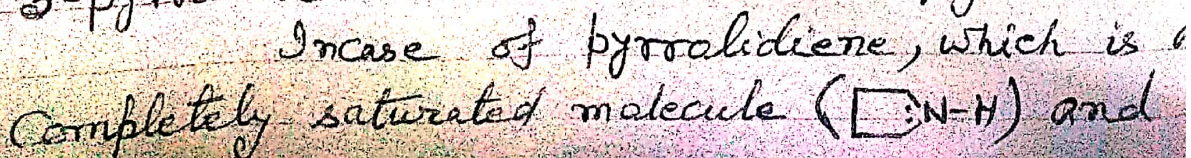 Incase of pyrralidiene, which is
Completely saturated molecule (:N-H) and